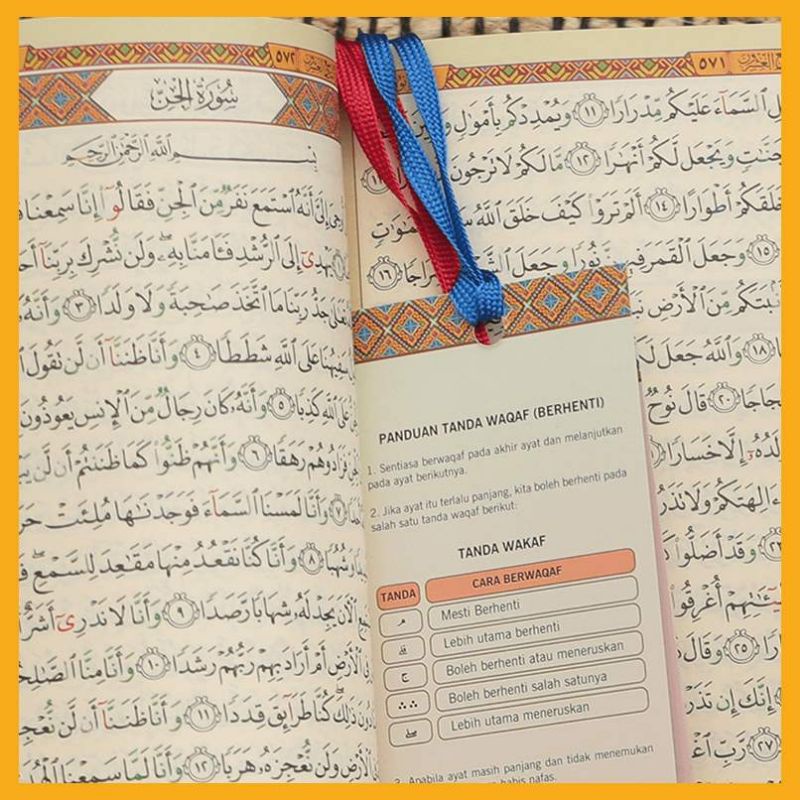 ٥٧١
السَّمَآءَ عَلَيْكُم مِّدْرَارًا ١١ وَيُمْدِدْكُم بِأَمْوَٰلٍ
جَنَّٰتٍ وَيَجْعَل لَّكُمْ أَنْهَٰرًا ١٢ مَّالَكُمْ لَا تَرْجُونَ
خَلَقَكُمْ أَطْوَارًا ١٤ أَلَمْ تَرَوْا كَيْفَ خَلَقَ اللَّهُ
١٥ وَجَعَلَ الْقَمَرَ فِيهِنَّ نُورًا وَجَعَلَ ١٦
مِّنَ الْأَرْضِ
١٨ وَاللَّهُ جَعَلَ
٢٠ قَالَ نُوحٌ
إِلَّا خَسَارًا
ءَالِهَتَكُمْ وَلَا
وَقَدْ أَضَلُّوا
أُغْرِقُوا
٢٥ وَقَالَ
إِنَّكَ إِن
٢٧ رَّبِّ
٥٧٢
سُورَةُ الْجِنِّ
بِسْمِ اللَّهِ الرَّحْمَٰنِ الرَّحِيمِ
أُوحِيَ إِلَىَّ أَنَّهُ اسْتَمَعَ نَفَرٌ مِّنَ الْجِنِّ فَقَالُوا إِنَّا سَمِعْنَا
يَهْدِىٓ إِلَى الرُّشْدِ فَـَٔامَنَّا بِهِۦ وَلَن نُّشْرِكَ بِرَبِّنَآ
تَعَٰلَىٰ جَدُّ رَبِّنَا مَا اتَّخَذَ صَٰحِبَةً وَلَا وَلَدًا ٣ وَأَنَّهُۥ
سَفِيهُنَا عَلَى اللَّهِ شَطَطًا ٤ وَأَنَّا ظَنَنَّآ أَن لَّن تَقُولَ
عَلَى اللَّهِ كَذِبًا ٥ وَأَنَّهُۥ كَانَ رِجَالٌ مِّنَ الْإِنسِ يَعُوذُونَ
فَزَادُوهُمْ رَهَقًا ٦ وَأَنَّهُمْ ظَنُّوا كَمَا ظَنَنتُمْ أَن لَّن
٧ وَأَنَّا لَمَسْنَا السَّمَآءَ فَوَجَدْنَٰهَا مُلِئَتْ
وَشُهُبًا ٨ وَأَنَّا كُنَّا نَقْعُدُ مِنْهَا مَقَٰعِدَ لِلسَّمْعِ
الْـَٔانَ يَجِدْ لَهُۥ شِهَابًا رَّصَدًا ٩ وَأَنَّا لَا نَدْرِىٓ أَشَرٌّ
الْأَرْضِ أَمْ أَرَادَ بِهِمْ رَبُّهُمْ رَشَدًا ١٠ وَأَنَّا مِنَّا الصَّٰلِحُونَ
دُونَ ذَٰلِكَ كُنَّا طَرَآئِقَ قِدَدًا ١١ وَأَنَّا ظَنَنَّآ أَن لَّن نُّعْجِزَ
الْأَرْضِ وَلَن نُّعْجِزَهُۥ هَرَبًا ١٢ وَأَنَّا لَمَّا سَمِعْنَا الْهُدَىٰٓ
PANDUAN TANDA WAQAF (BERHENTI)
1. Sentiasa berwaqaf pada akhir ayat dan melanjutkan
pada ayat berikutnya.
2. Jika ayat itu terlalu panjang, kita boleh berhenti pada
salah satu tanda waqaf berikut:
TANDA WAKAF
TANDA CARA BERWAQAF
مـ Mesti Berhenti
قلى Lebih utama berhenti
ج Boleh berhenti atau meneruskan
∴ ∴ Boleh berhenti salah satunya
صلى Lebih utama meneruskan
3. Apabila ayat masih panjang dan tidak menemukan
habis nafas.